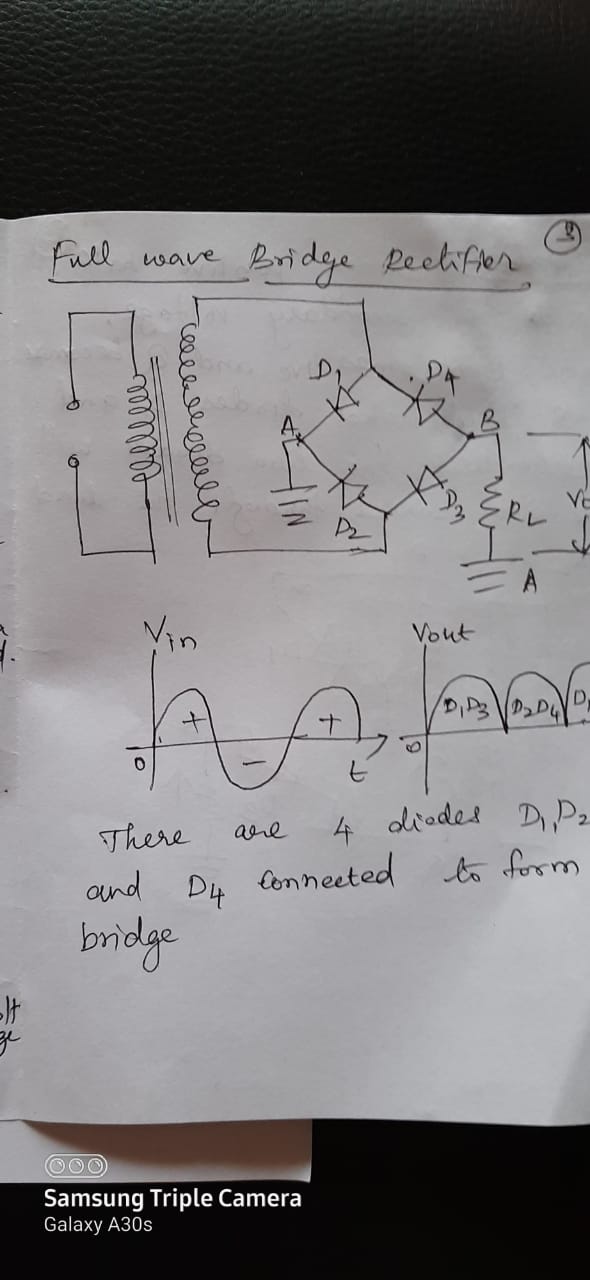 3
Full wave Bridge Rectifier
D1 D4
A B
D2 D3 RL
A
Vin Vout
+ + D1D3 D2D4
0 - t 0
There are 4 diodes D1, D2
and D4 connected to form
bridge
Samsung Triple Camera
Galaxy A30s